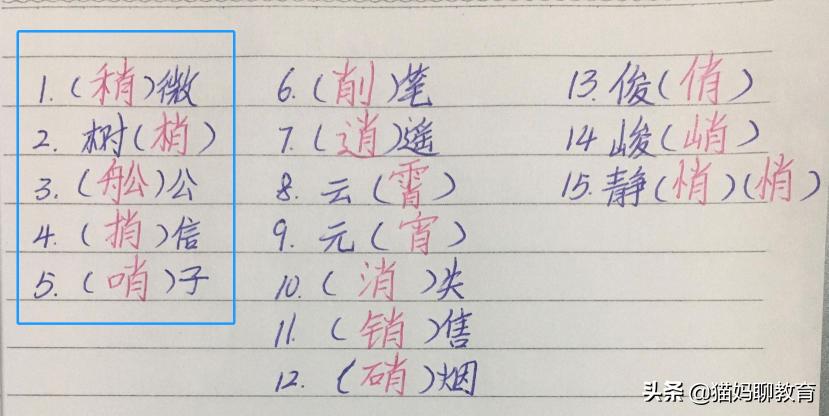 1.(稍)微
2. 树(梢)
3.(舩)公
4.(捎)信
5.(哨)子
6.(削)笔
7.(逍)遥
8. 云(霄)
9. 元(宵)
10.(消)失
11.(销)售
12.(硝)烟
13. 俊(俏)
14 峻(峭)
15. 静(悄)(悄)
头条 @猫妈聊教育